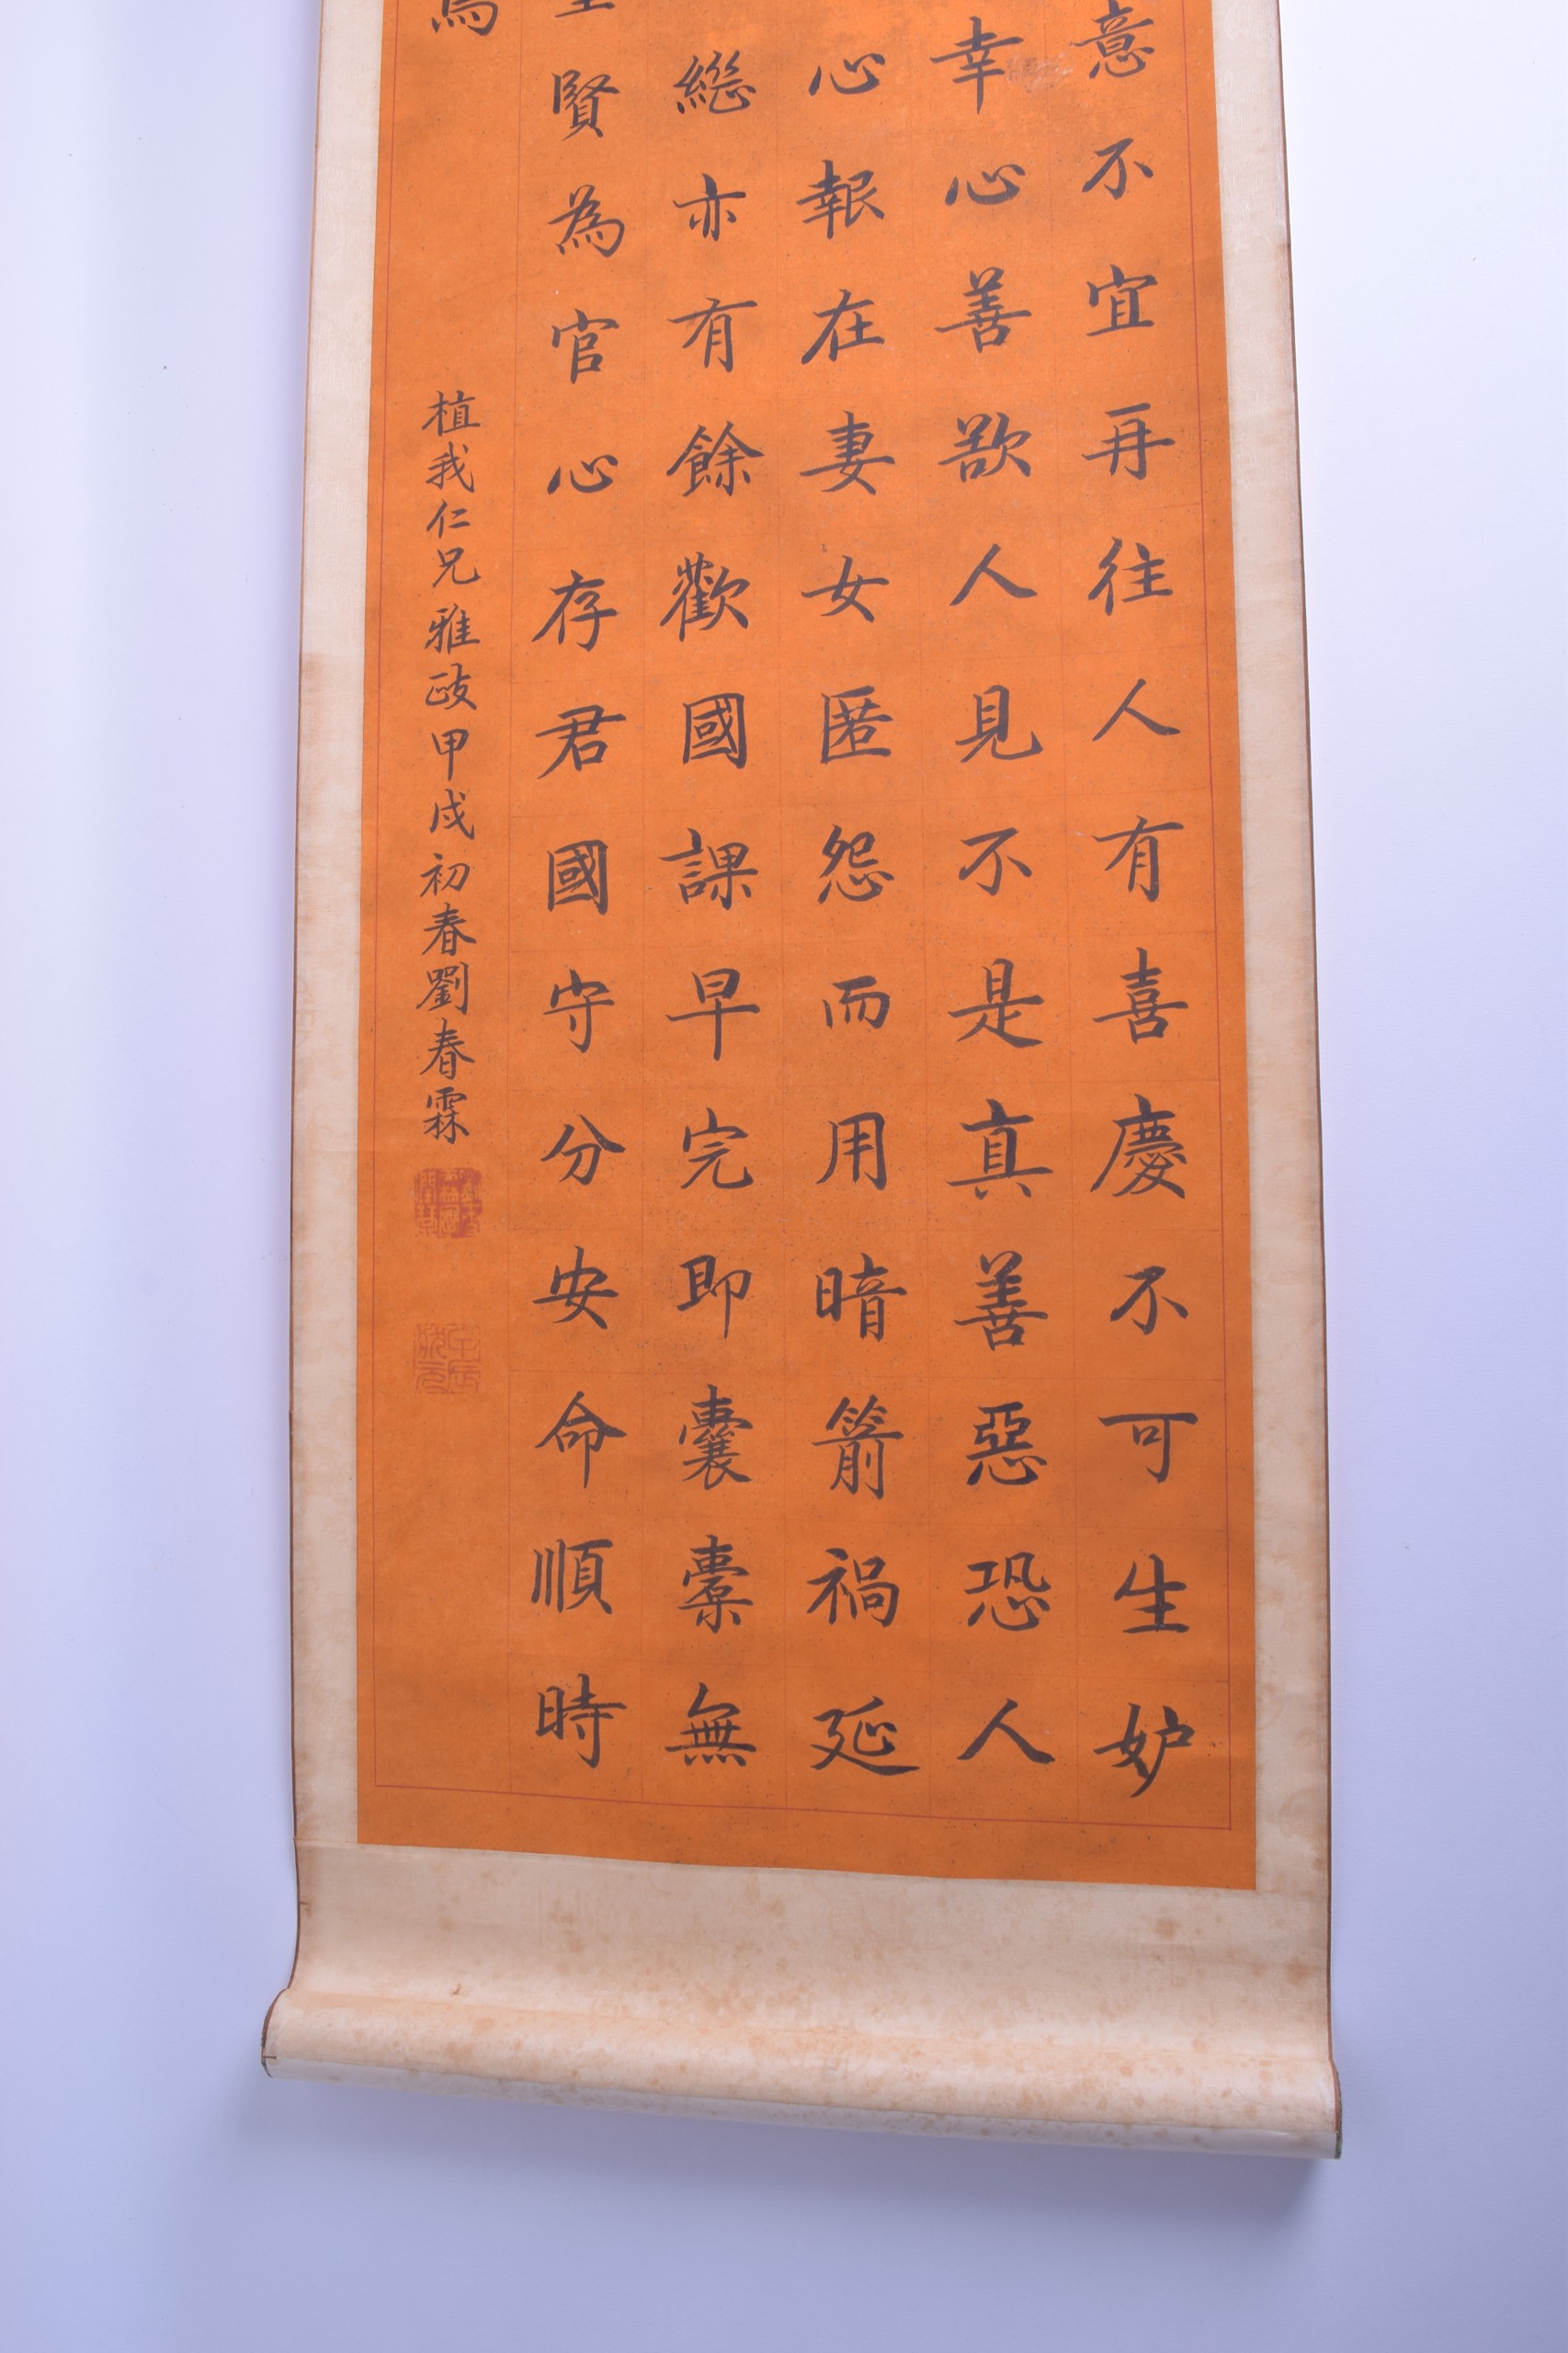 意不宜再往人有喜慶不可生妒
幸心善欲人見不是真善惡恐人
心報在妻女匿怨而用暗箭禍延
繼亦有餘歡國課早完即囊橐無
賢為官心存君國守分安命順時
焉
植我仁兄雅政甲戌初春劉春霖